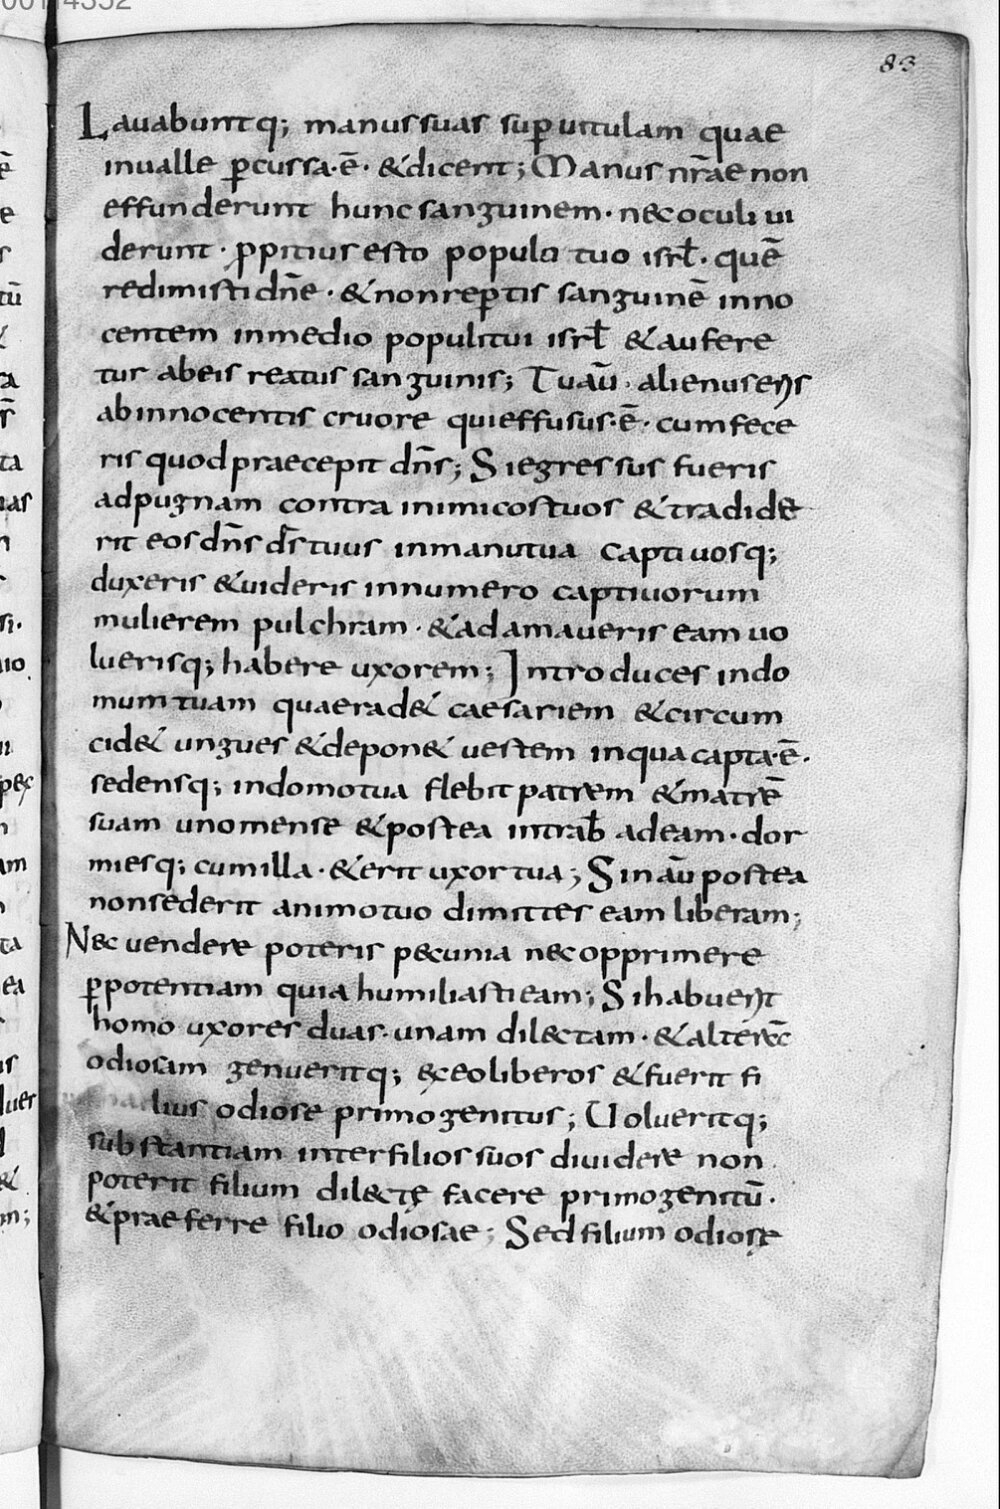 83
Lauabuntq; manus suas sup uitulam quae
inualle pcussa·ē· &dicent; Manus nr̄ae non
effunderunt hunc sanguinem· nec oculi ui
derunt· ppitius esto populo tuo isrł· quē
redimisti dn̄e· &non reputis sanguinē inno
centem inmedio populi tui isrł &aufere
tur abeis reatus sanguinis; Tu aū· alienus eris
ab innocentis cruore qui effusus·ē· cum fece
ris quod praecepit dn̄s; Si egressus fueris
ad pugnam contra inimicos tuos &tradide
rit eos dn̄s ds̄ tuus inmanu tua captiuosq;
duxeris &uideris innumero captiuorum
mulierem pulchram· &adamaueris eam uo
luerisq; habere uxorem; Introduces indo
mum tuam quae rad& caesariem &circum
cid& ungues &depon& uestem inqua capta·ē·
sedensq; indomo tua flebit patrem &matrē
suam uno mense &postea intrab̄ ad eam· dor
miesq; cum illa· &erit uxor tua; Sin aū postea
non sederit animo tuo dimittes eam liberam;
Nec uendere poteris pecunia nec opprimere
p potentiam quia humiliasti eam; Si habuerit
homo uxores duas· unam dilectam· &alterā
odiosam genueritq; ex eo liberos &fuerit fi
lius odiose primogenitus; Uolueritq;
substantiam inter filios suos diuidere non
poterit filium dilectę facere primogenitū·
&praeferre filio odiosae; Sed filium odiosę